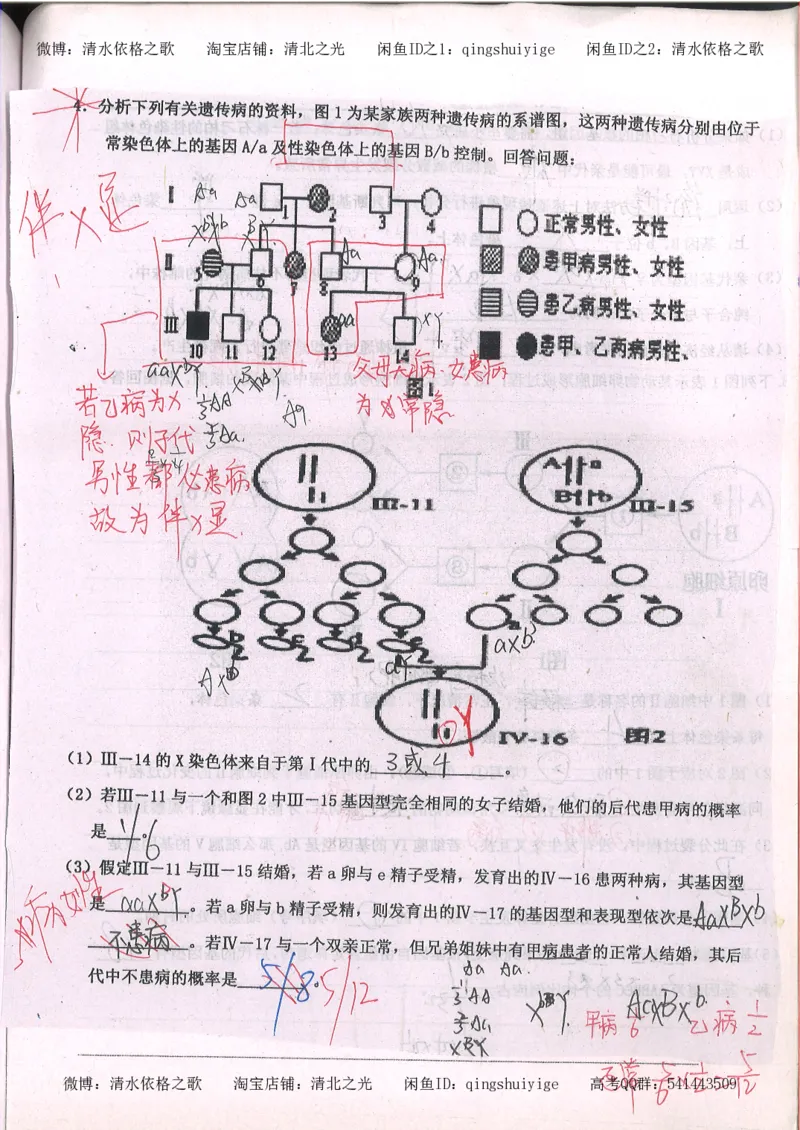 微博：清水依格之歌 淘宝店铺：清北之光 闲鱼ID之1：qingshuiyige 闲鱼ID之2：清水依格之歌
4．分析下列有关遗传病的资料，图1为某家族两种遗传病的系谱图，这两种遗传病分别由位于
常染色体上的基因A/a及性染色体上的基因B/b控制。回答问题：
伴X显
Ⅰ Aa Aa 1 2 3 4
正常男性、女性
XᴮXᵇ XᴮY
Ⅱ 5 6 7 8 Aa 9 Aa
患甲病男性、女性
患乙病男性、女性
Ⅲ 10 11 12 13 aa 14 XY
患甲、乙两病男性、
aaXᴮY
图1
父母无病，女患病
为常隐
若乙病为X
隐，则子代
男性都必患病
故为伴X显
1/3AA
2/3Aa
Aa
Ⅲ-11 Ⅲ-15
A a
B b
b c d e
a
aXᴮ
AXᵇ
aY
Ⅳ-16 图2
(1) Ⅲ－14的X染色体来自于第Ⅰ代中的 3或4
(2) 若Ⅲ－11与一个和图2中Ⅲ－15基因型完全相同的女子结婚，他们的后代患甲病的概率
是 1/6。
(3) 假定Ⅲ－11与Ⅲ－15结婚，若a卵与e精子受精，发育出的Ⅳ－16患两种病，其基因型
是 aaXᴮY 。若a卵与b精子受精，则发育出的Ⅳ－17的基因型和表现型依次是 AaXᴮXᵇ
不患病 。若Ⅳ－17与一个双亲正常，但兄弟姐妹中有甲病患者的正常人结婚，其后
代中不患病的概率是 5/8 。5/12
Aa Aa
1/3AA
2/3Aa
XᵇY AaXᴮXᵇ
甲病 1/6 乙病 1/2
正常 5/6 × 1/2 = 5/12
微博：清水依格之歌 淘宝店铺：清北之光 闲鱼ID：qingshuiyige 高考QQ群：541443509